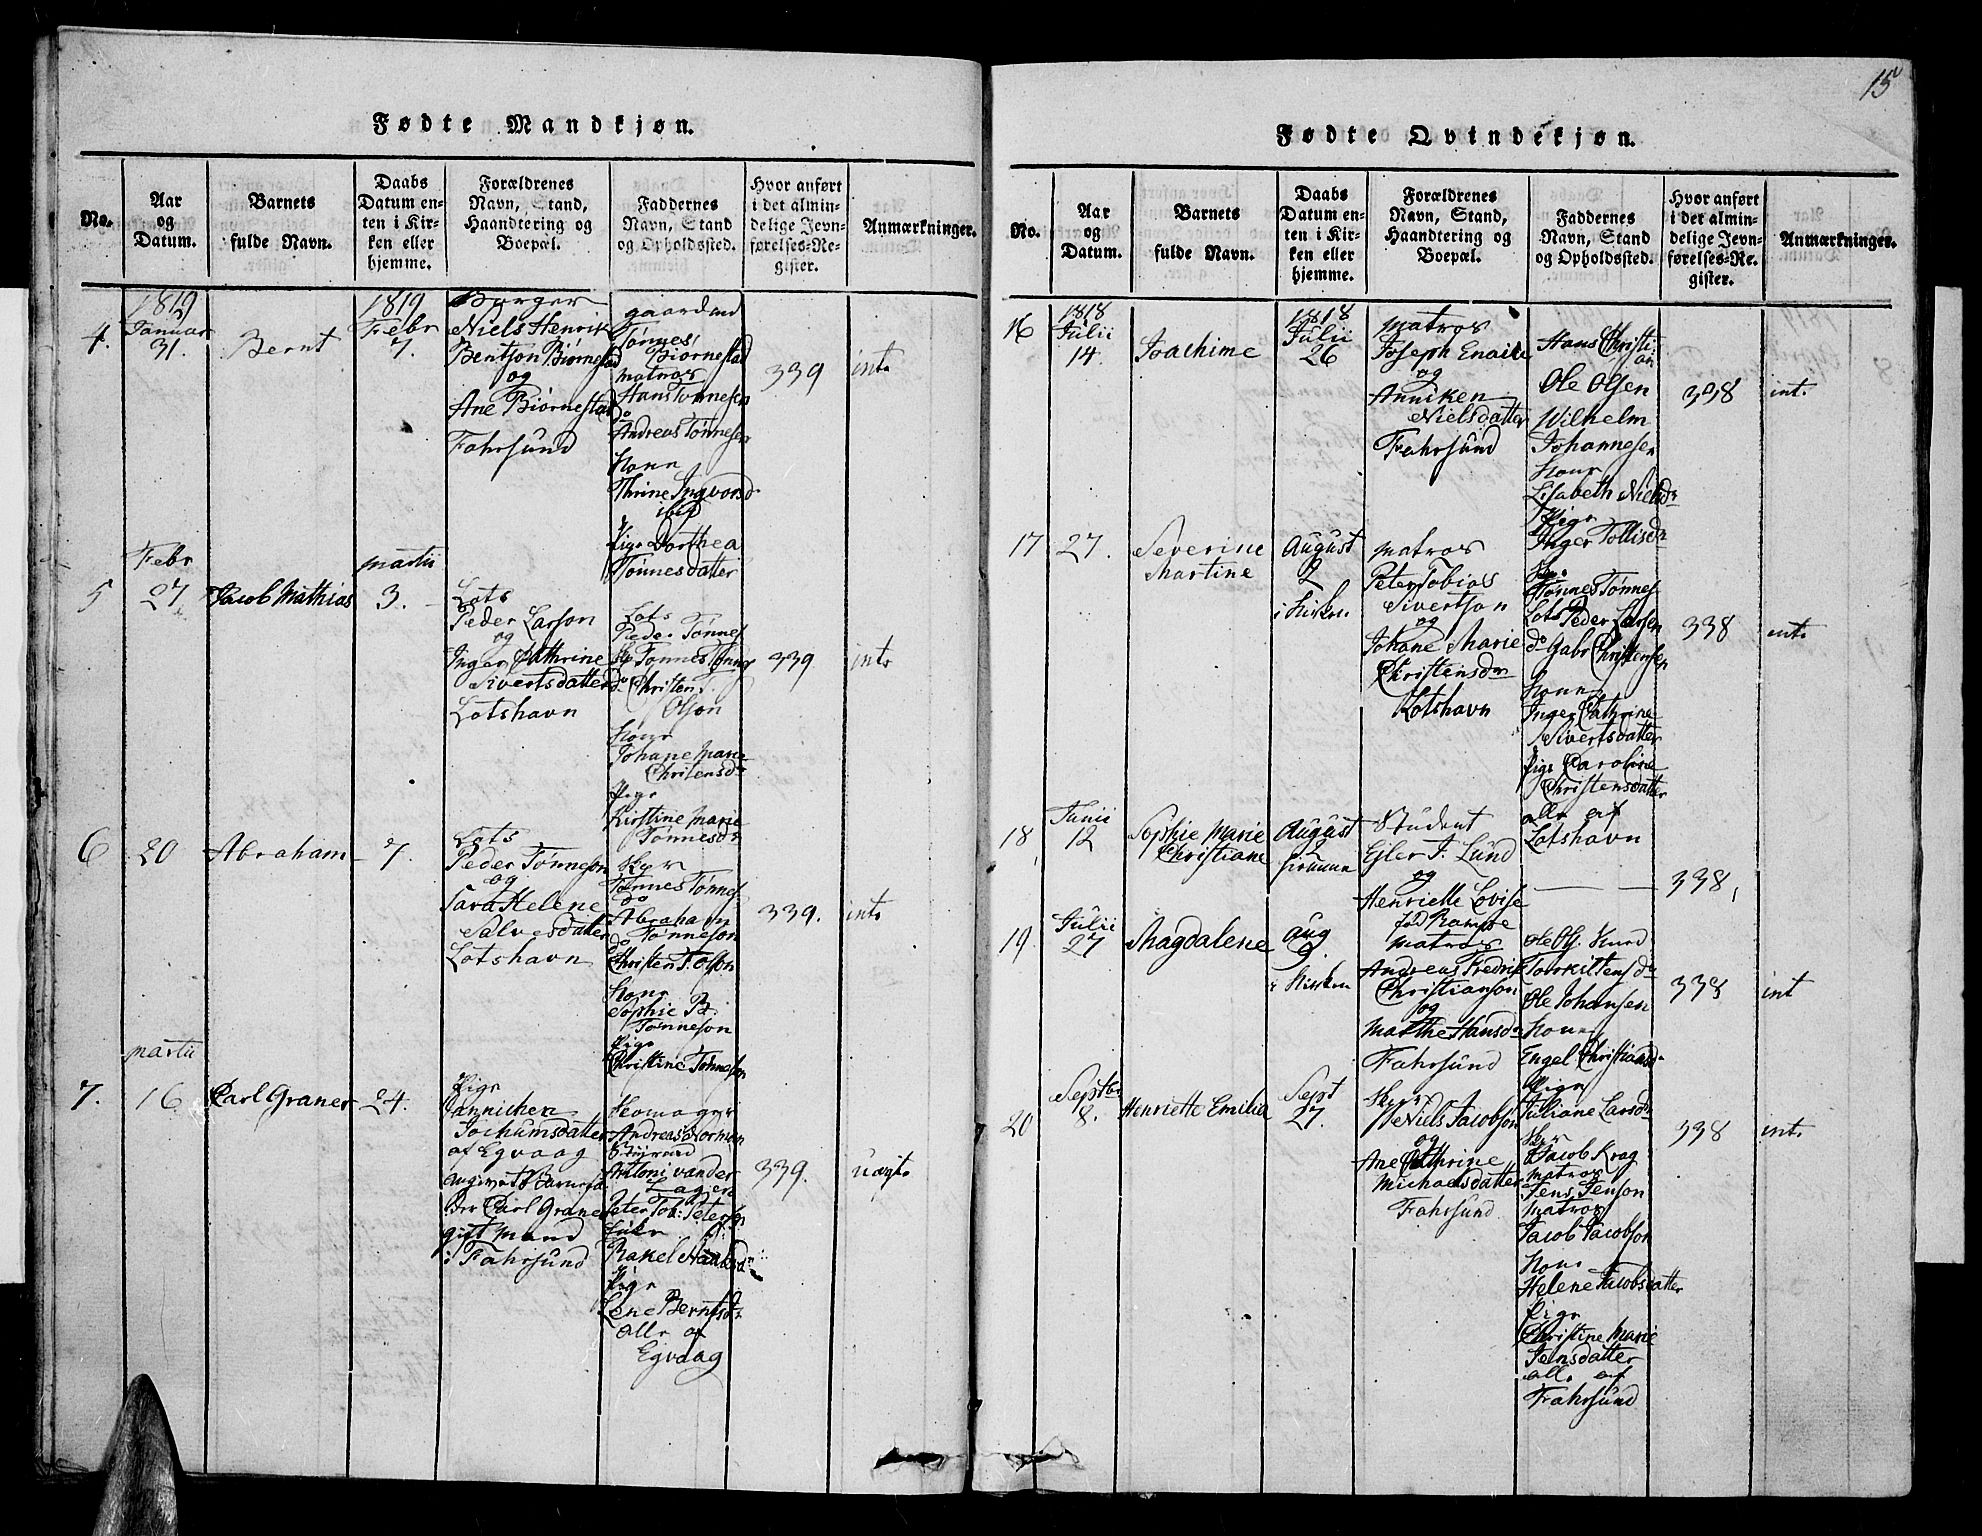 15
Fødte Mandkjøn.
No.
Aar
og
Datum.
Barnets
fulde Navn.
Daabs
Datum en-
ten i Kir-
ken eller
hjemme.
Forældrenes
Navn, Stand,
Haandtering og
Boepæl.
Faddernes
Navn, Stand
og Opholdssted.
Hvor anført
i det almin-
delige Jevn-
førelses-Re-
gister.
Anmærkninger.
4.
1819
Januar
31.
Bernt
1819
Febr
7.
Borger
Niels Henrik
Bentson Biørnestad
og
Ane Biørnestad
Fahrsund
Tønnes
Biørnestad
matros
Hans Tønnesen
do
Andreas Tønnesen
Kone
Thrine Ingvorsd
ibid
Pige Dorthea
Tønnesdatter
339
int.
5
Febr
27.
Jacob Mathias
martii
3.
Lots
Peder Larson
og
Inger Cathrine
Sivertsdatter
Lotshavn
Lots
Peder Tønnes
Tønnes Tønnes
do Christen
Olson
Kone
Johane Marie
Christensdr
Pige
Kirstine Marie
Tønnesdr
339
int.
6
20
Abraham
7.
Lots
Peder Tønneson
og
Sara Helene
Salvesdatter
Lotshavn
Tønnes Tønnes
do
Abraham
Tønneson
do
Christen T. Olson
Kone
Sophie P.
Tønneson
Pige
Christine Tønneson
339.
int.
7.
martii
16
Carl Graner
24.
Pige
Jannichen
Jochumsdatter
af Egvaag
angivet Barnefa
der Carl Graner
gift mand
i Fahrsund
Andreas Norman
Antoni vander
Lagen
Peter Tob: Peterson
Rakel
Pige
Lene Berntsdr
alle af
Egvaag
339.
uægt.
Fødte Qvindekjøn.
No.
Aar
og
Datum.
Barnets
fulde Navn.
Daabs
Datum en-
ten i Kir-
ken eller
hjemme.
Forældrenes
Navn, Stand,
Haandtering og
Boepæl.
Faddernes
Navn, Stand
og Opholdssted.
Hvor anført
i det almin-
delige Jevn-
førelses-Re-
gister.
Anmærkninger.
16
1818
Julii
14.
Joachime
1818
Julii
26
matros
Joseph
og
Anniken
Nielsdatter
Fahrsund
Hans Christi
an
Ole Olsen
Wilhelm
Johannesen
Kone
Lisabeth Nielsdr
Pige
Inger Tollisdr
338
int.
17
27.
Severine
Martine
August
2
i Kirken
matros
Peter Tobias
Sivertson
og
Johane Marie
Christensdr
Lotshavn
Tønnes Tønnes
Lots Peder Larsen
do Gabr Christensen
Kone
Inger Cathrine
Sivertsdatter
Pige Caroline
Christensdatter
alle af
Lotshavn
338
int.
18
Junii
12
Sophie Marie
Christiane
August
2
Student
Ejler J. Lund
og
Henriette Lovise
fød
338
19
Julii
27
Magdalene
aug
9.
i Kirken
matros
Andreas Fredrik
Christianson
og
Marthe Hansdr
Fahrsund
Ole Johansen
Kone
Engel Christiansd
Pige
Juliane Larsdr
338
int
20
Septbr
8.
Henriette Emilia
Sept
27.
Niels Jacobson
og
Ane Cathrine
Michaelsdatter
Fahrsund
Jacob Krag
matros
Jens Jenson
matros
Jacob Jacobson
Kone
Helene Jacobsdatter
Pige
Christine Marie
Jensdatter
alle af
Fahrsund
338
int.